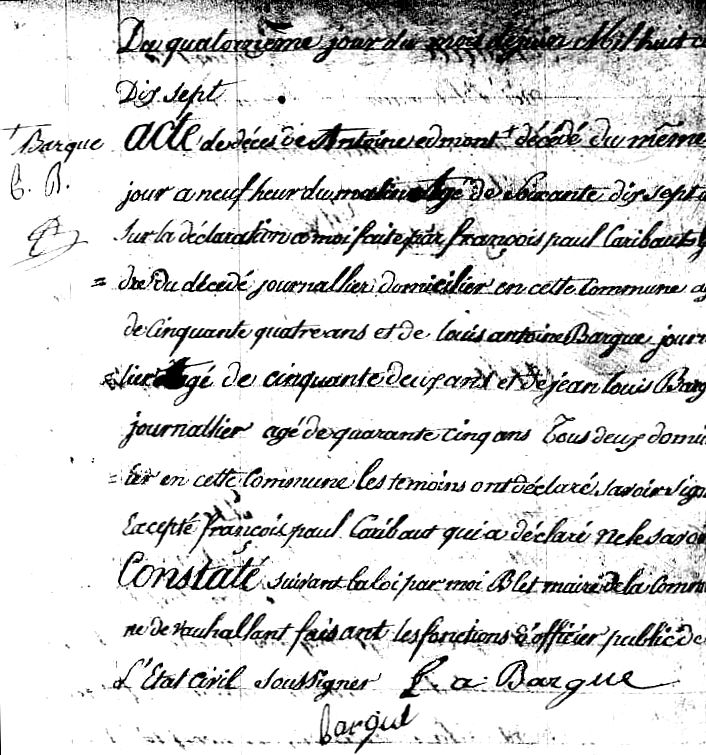 Du quatorzième jour du mois de juin Mil huit c
Dix sept
† Barque
E. B.
acte de déces de Antoine edmont † décédé du même
jour a neuf heur du matin agé de Soixante dix sept
Sur la déclaration a moi faite par françois paul Caribaut g
= dre du décedé journallier domicilier en cette Commune ag
de Cinquante quatre ans et de louis antoine Barque journ
= lier agé de cinquante deux ans et de jean louis Barq
journallier agé de quarante cinq ans Tous deux domi
= lier en cette Commune les temoins ont déclaré savoir sign
Excepté françois paul Caribaut qui a déclaré ne le savoi
Constaté suivant la loi par moi Blet maire de la Comm
ne de vauhallant faisant les fonctions d'officier public de
L'Etat Civil soussigner L. a Barque
barque